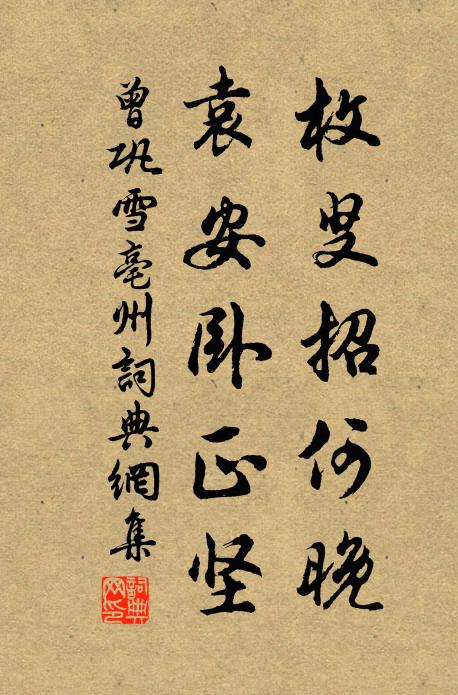 枚叟招何晚
袁安卧正坚
曾巩雪亳州詞典網集
詞典網印